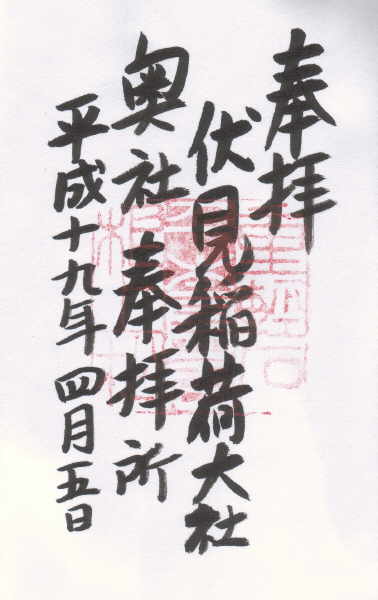 奉拝
伏見稲荷大社
奥社奉拝所
平成十九年四月五日